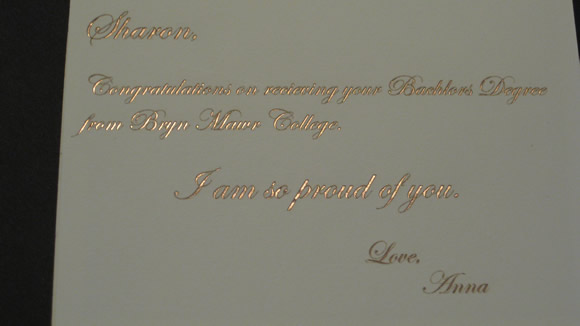 Sharon,
Congratulations on recieving your Bachlors Degree
from Bryn Mawr College.
I am so proud of you.
Love,
Anna